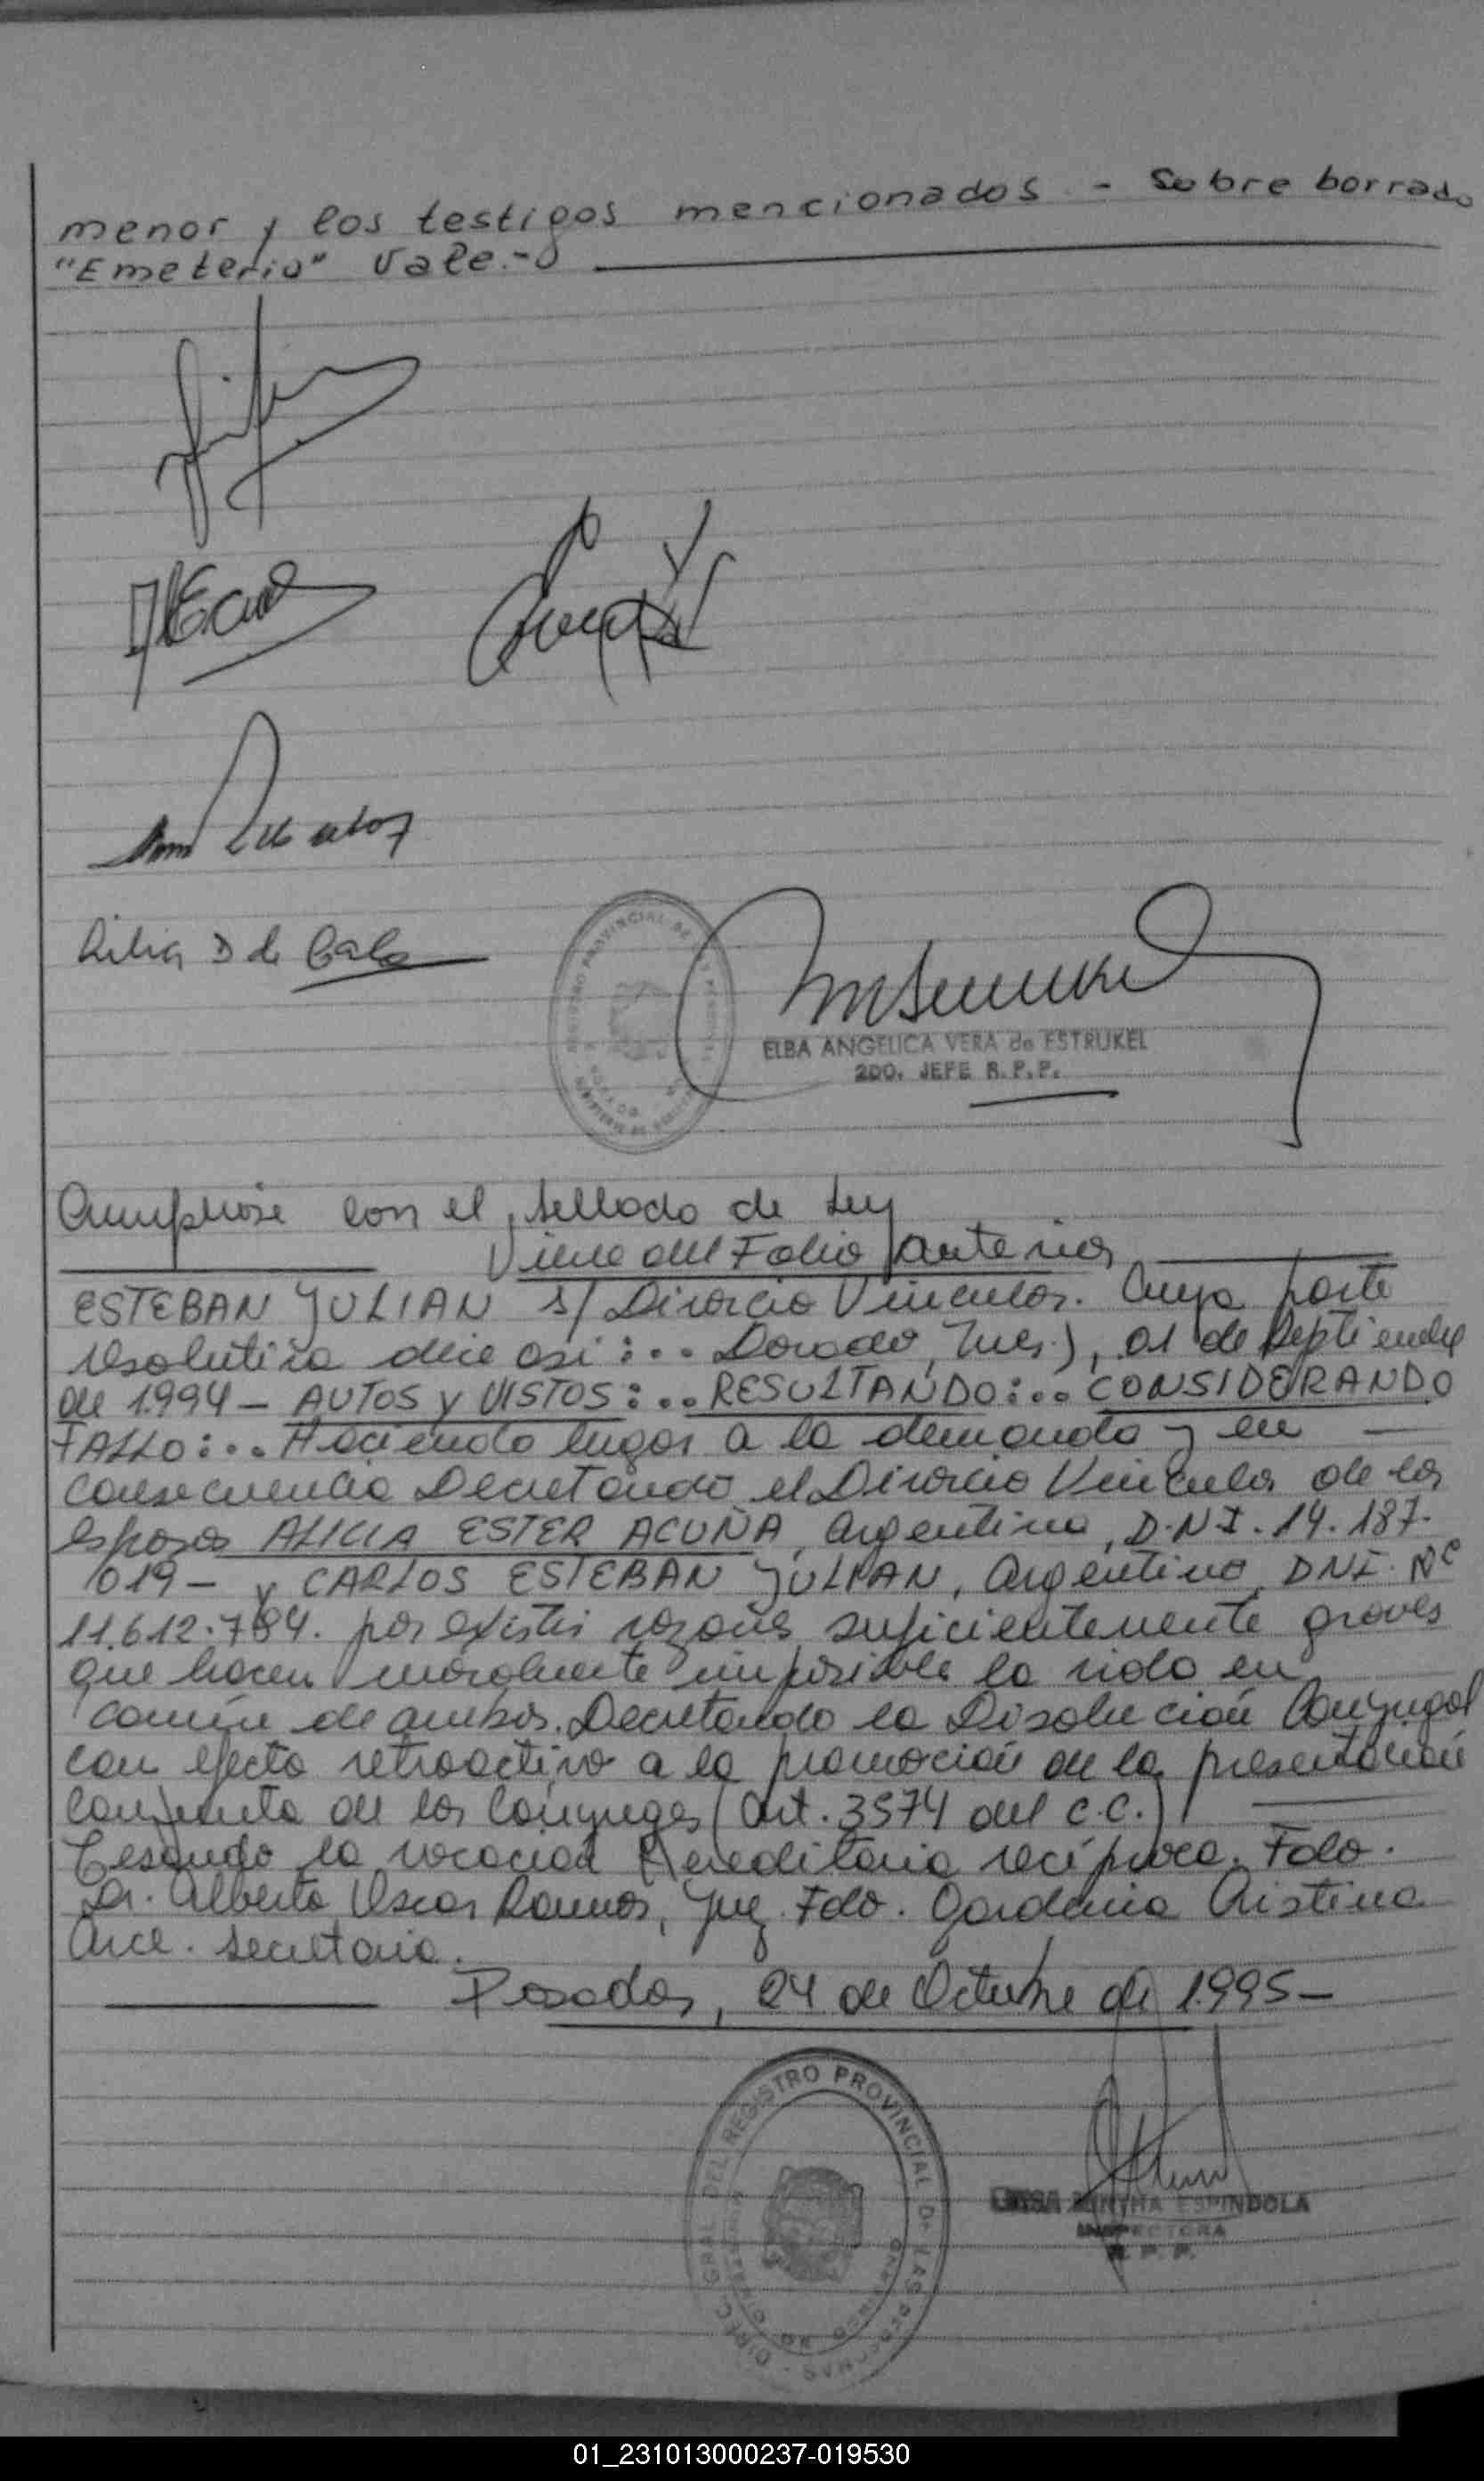 menor y los testigos mencionados. - Sobre borrado
"Emeterio" Vale.-
Lilia D de
REGISTRO PROVINCIAL DE
ELBA ANGELICA VERA de ESTRUKEL
2DO. JEFE R.P.P.
con el sellado de Ley
Viene del Folio anterior
ESTEBAN JULIAN s/ Divorcio Vincular. Cuya parte
resolutiva dice asi:.. Dorado, Mnes.), 01 de Septiembre
de 1994 - AUTOS y VISTOS:.. RESULTANDO:.. CONSIDERANDO
FALLO:.. Haciendo lugar a la demanda y en
consecuencia Decretando el Divorcio Vincular de los
esposos ALICIA ESTER ACUÑA, Argentina, D.N.I. 14.187.
019- y CARLOS ESTEBAN JULIAN, Argentino, DNI. Nº
11.612.784. por existir razones suficientemente graves
que hacen moralmente imposible la vida en
común de ambos. Decretando la Disolución Conyugal
con efecto retroactivo a la promoción de la presentación
conjunta de los Cónyuges (Art. 3574 del C.C.)
Cesando la vocación Hereditaria recíproca. Fdo.
Dr. Alberto Oscar Ramos, Juez. Fdo. Gardenia Cristina
Arce. Secretaria.
Posadas, 24 de Octubre de 1.995-
DIREC. GRAL. DEL REGISTRO PROVINCIAL DE LAS PERSONAS
MIRTHA ESPINDOLA
INSPECTORA
R.P.P.
01_231013000237-019530